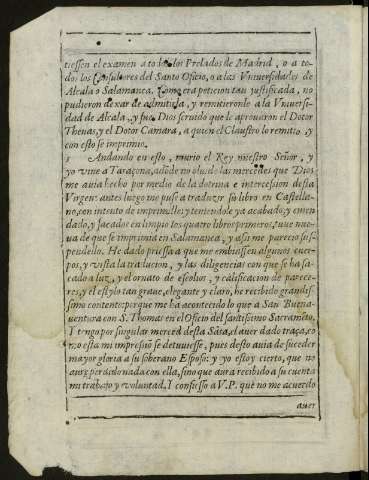 tiessen el examen a todos los Prelados de Madrid, o a to-
dos los Consultores del Santo Oficio, o a las Vniuersidades de
Alcala o Salamanca. Como era peticion tan justificada, no
pudieron dexar de admitirla, y remitieronle a la Vniuersi-
dad de Alcala, y fue Dios seruido que le aprouaron el Dotor
Thenas, y el Dotor Camara, a quien el Claustro lo remitio, y
con esto se imprimio.
Andando en esto, murio el Rey nuestro Señor, y
yo vine a Taraçona, adõde no oluidè las mercedes que Dios
me auia hecho por medio de la dotrina e intercession desta
Virgen: antes luego me puse a traduzir su libro en Castella-
no, con intento de imprimirle: y teniendole ya acabado, y emen
dado, y sacados en limpio los quatro libros primeros, tuue nue
ua de que se imprimia en Salamanca, y assi me parecio sus-
pendello. He dado priessa a que me embiassen algunos cuer-
pos, y vista la traslacion, y las diligencias con que se ha sa-
cado a luz, y el ornato de escolios, y calificacion de parece-
res, y el estylo tan graue, elegante y claro, he recibido grandis-
simo contento: porque me ha acontecido lo que a San Buena-
uentura con S. Thomas en el Oficio del santissimo Sacramẽto,
Y tengo por singular merced desta Sãta, el auer dado traça, co
mo esta mi impresiõ se detuuiesse, pues desto auia de suceder
mayor gloria a su soberano Esposo: y yo estoy cierto, que no
aurè perdido nada con ella, sino que aura recibido a su cuenta
mi trabajo y voluntad. Y confiesso a V. P. que no me acuerdo
auer